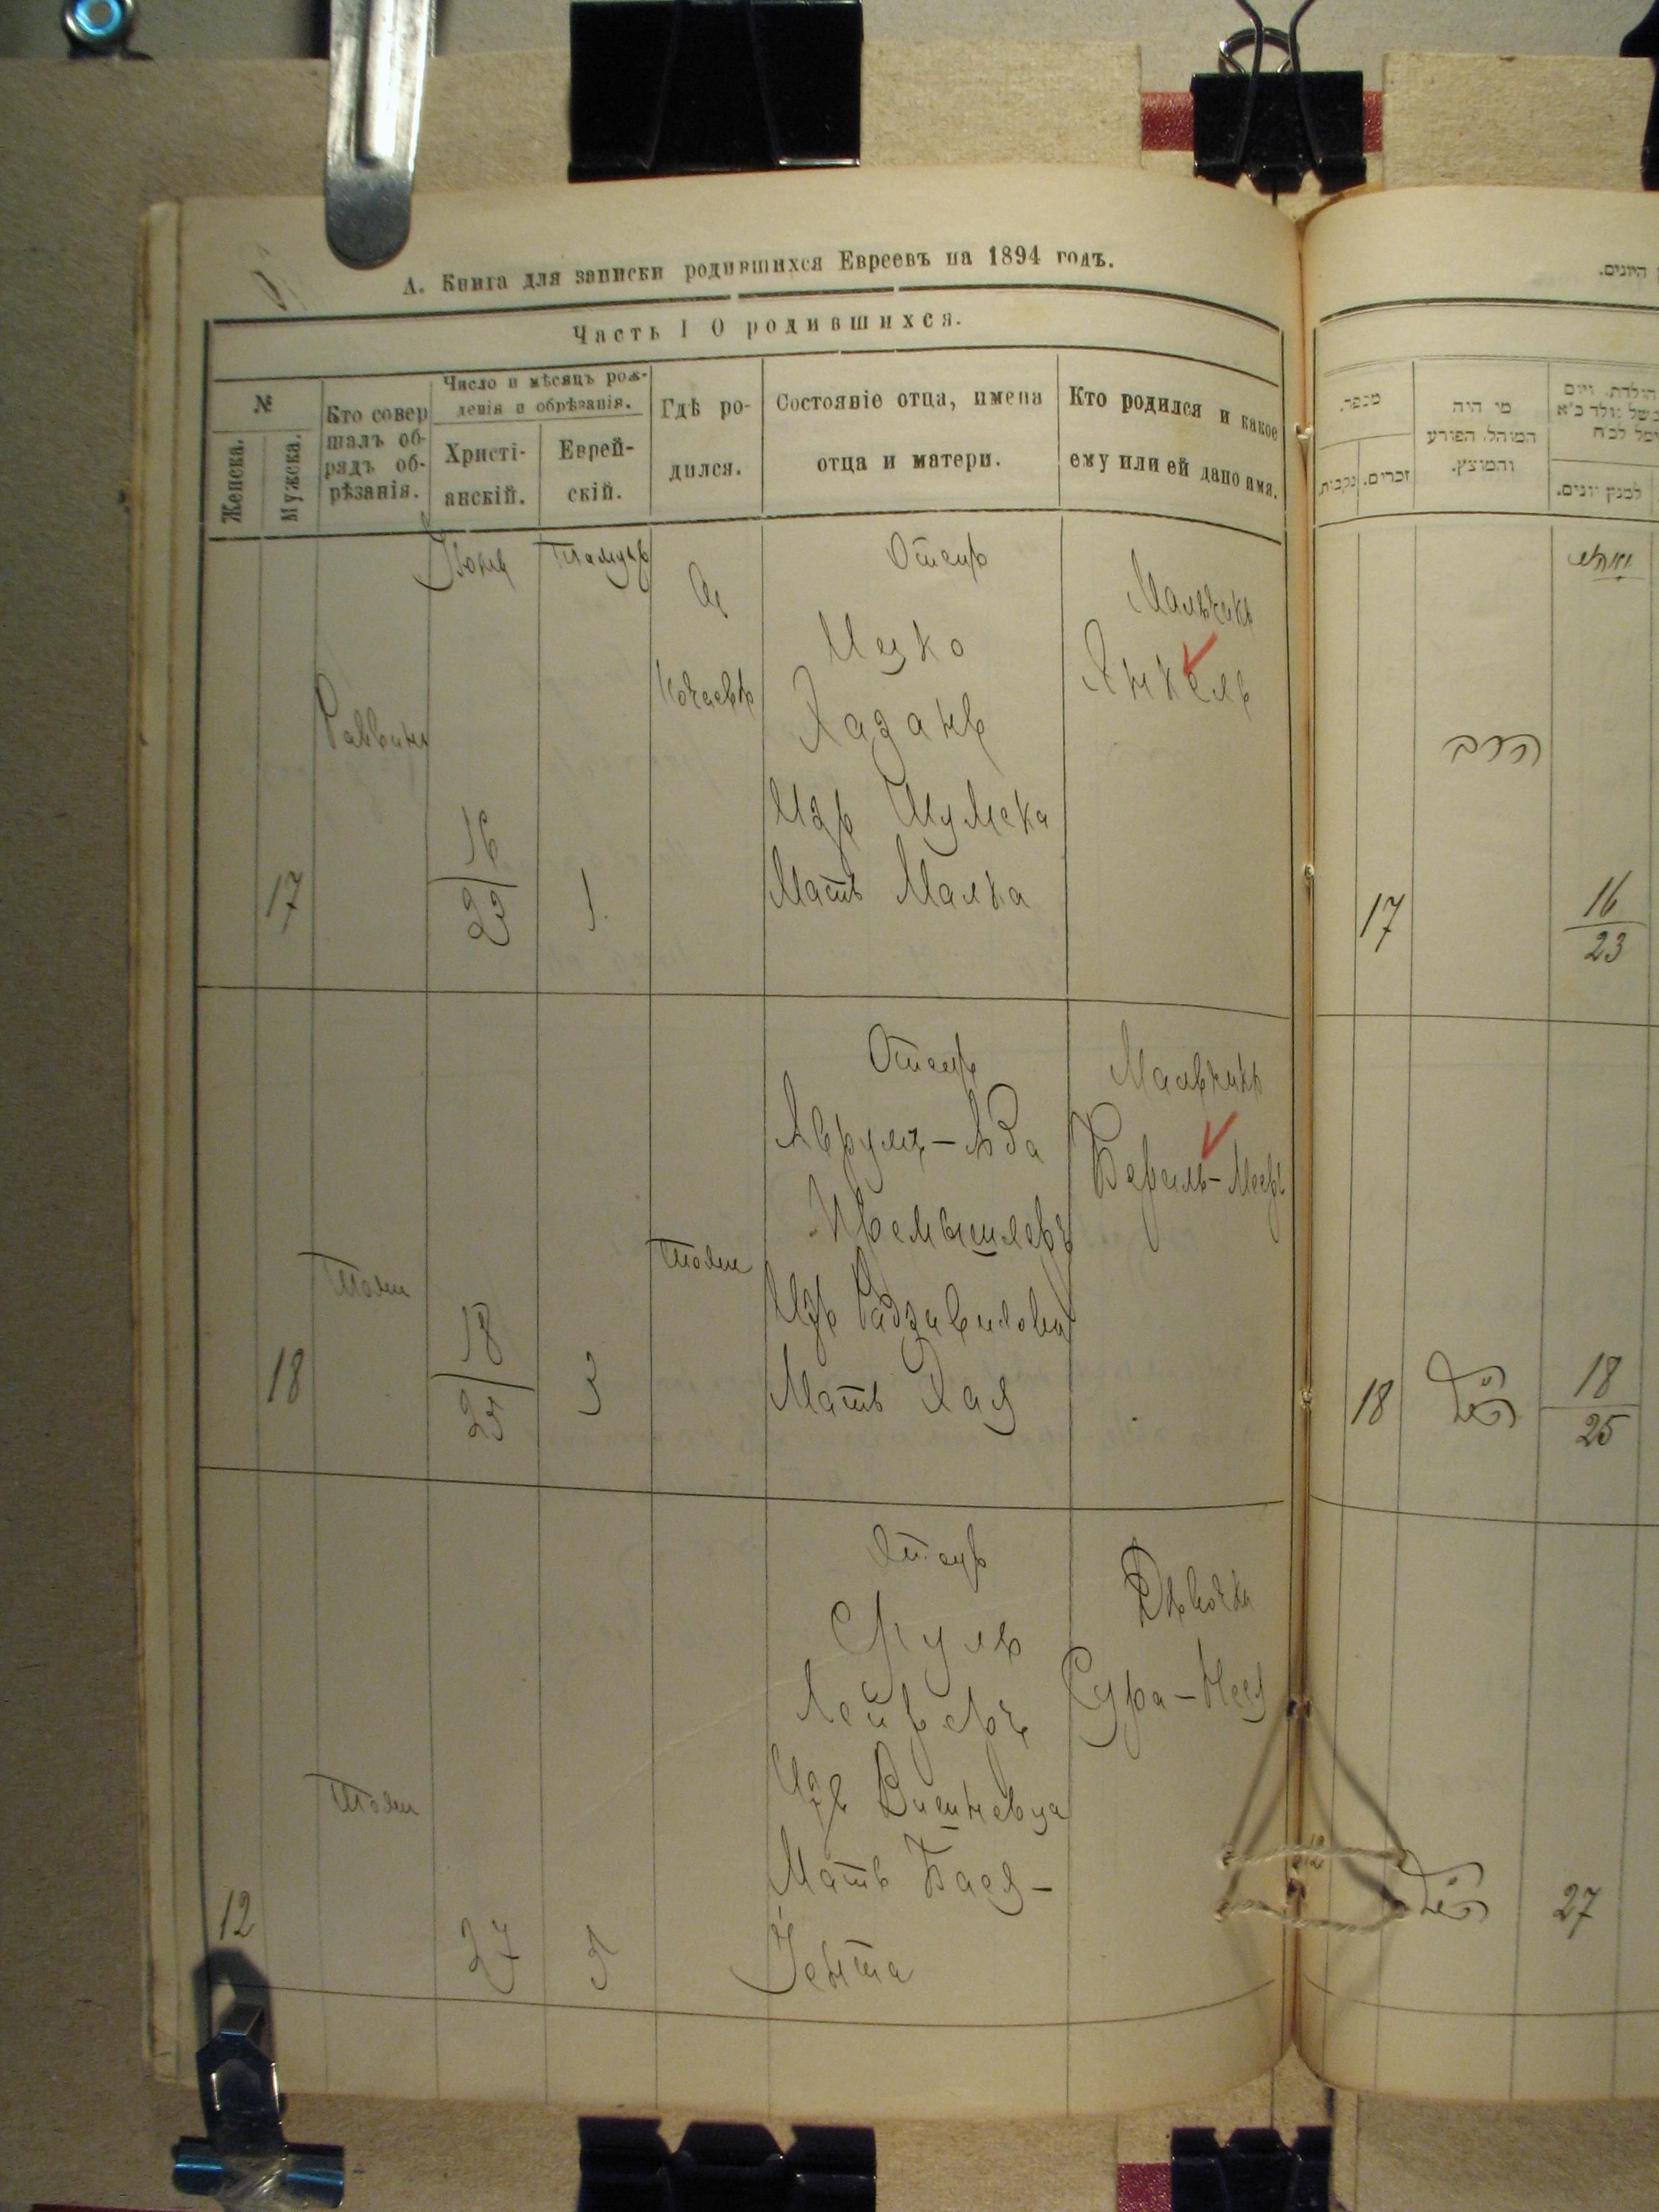 А. Книга для записки родившихся Евреевъ на 1894 годъ.
Часть I О родившихся.
№
Женска.
Мужска.
Кто совер
шалъ об-
рядъ об-
рѣзанія.
Число и мѣсяцъ рож-
денія и обрѣзанія.
Христі-
анскій.
Еврей-
скій.
Гдѣ ро-
дился.
Состояніе отца, имена
отца и матери.
Кто родился и какое
ему или ей дано имя.
17
Раввинъ
Іюнь
16
23
Тамузъ
1
Отецъ
Ицко
Хазанъ
Изъ Шумска
Мать Малка
Мальчикъ
Янкель
18
Тоже
18
25
3
Тоже
Отецъ
Аврумъ-Аба
Изъ Радзивилова
Мать Хая
Мальчикъ
Берель-Мееръ
12
Тоже
27
5
Отецъ
Сруль
Изъ Вишневца
Мать Бася-
Іента
Дѣвочка
Сура-Неся
היונים.
מספר.
זכרים.
נקבות.
מי היה
המוהל, הפורע
והמוצץ.
למנין יונים.
17
הרב
16
23
18
18
25
12
27